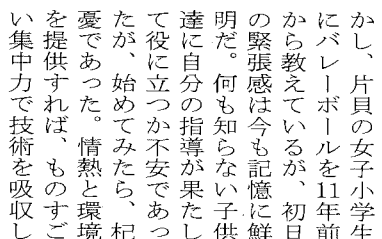 かし、片貝の女子小学生
にバレーボールを11年前
から教えているが、初日
の緊張感は今も記憶に鮮
明だ。何も知らない子供
達に自分の指導が果たし
て役に立つか不安であっ
たが、始めてみたら、杞
憂であった。情熱と環境
を提供すれば、ものすご
い集中力で技術を吸収し